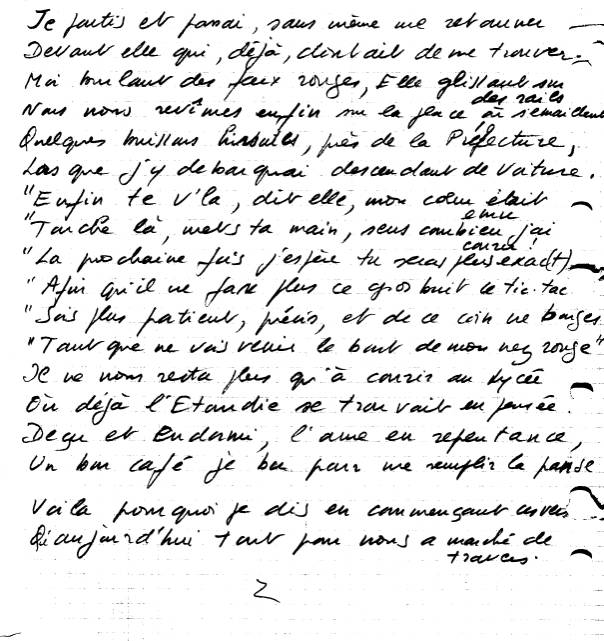 Je partis et passai, sans même me retourner
Devant elle qui, déjà, doutait de me trouver.
Moi brulant des feux rouges, Elle glissant sur des rails
Nous nous revîmes enfin sur la place où s'émaillent
Quelques buissons hirsutes, près de la Préfecture,
Lors que j'y debarquai descendant de voiture.
"Enfin te v'la, dit elle, mon cœur était emu
"Touche là, mets ta main, sens combien j'ai couru!
"La prochaine fois j'espère tu seras plus exac(t)
"Afin qu'il ne fasse plus ce gros bruit ce tic-tac
"Sois plus patient, précis, et de ce coin ne bouges
"Tant que ne vois venir le bout de mon nez rouge"
Il ne nous resta plus qu'à courir au Lycée
Où déjà l'Etourdie se trouvait en pensée.
Deçu et Endormi, l'ame en repentance,
Un bon café je bu pour me remplir la panse
Voila pourquoi je dis en commençant ces vers
Qu'aujourd'hui tout pour nous a marché de travers.
2